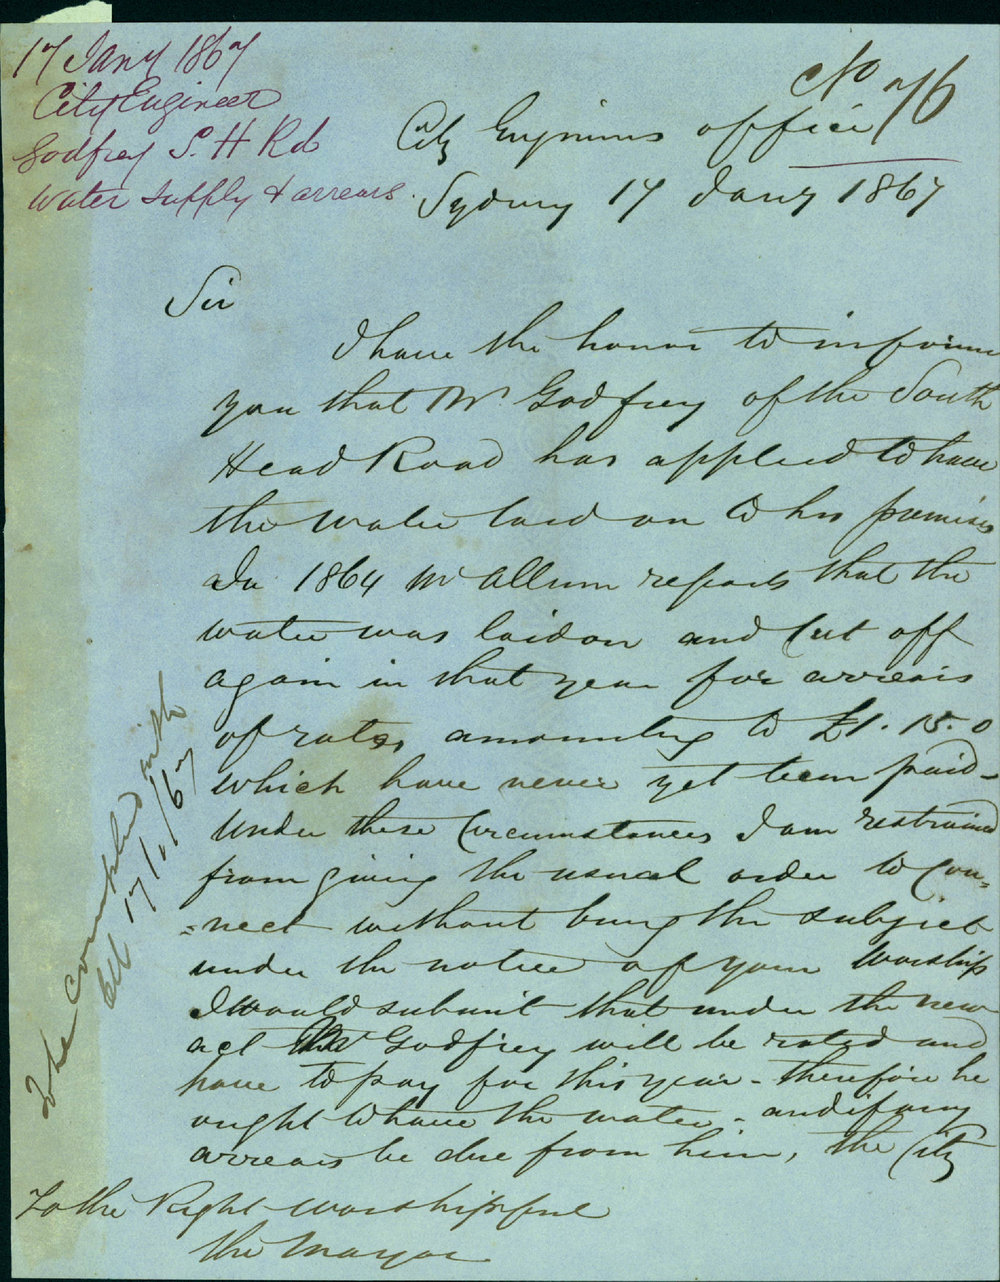 17 Jany 1867
City Engineer
Godfrey S. H Rd
Water supply & arrears.
No 76
City Engineers office
Sydney 17 Jany 1867
Sir
I have the honor to inform
you that Mr Godfrey of the South
Head Road has applied to have
the water laid on to his premises
In 1864 Mr Allum reports that the
water was laid on and Cut off
again in that year for arrears
of rates, amounting to £1. 15. 0
which have never yet been paid -
Under these Circumstances I am restrained
from giving the usual order to Con=
=nect without bring the subject
under the notice of your Worship
I would submit that under the new
act Mr Godfrey will be rated and
have to pay for this year - therefore he
ought to have the water - and if any
arrears be due from him, the City
To the Right Worshipful
the Mayor
To be complied with
17/1/67